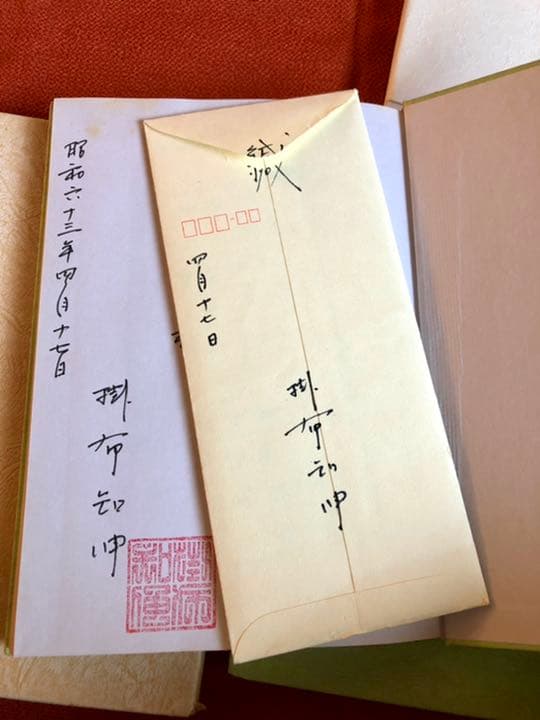 昭和六十三年四月十七日
掛布知伸
緘
四月十七日
掛布知伸